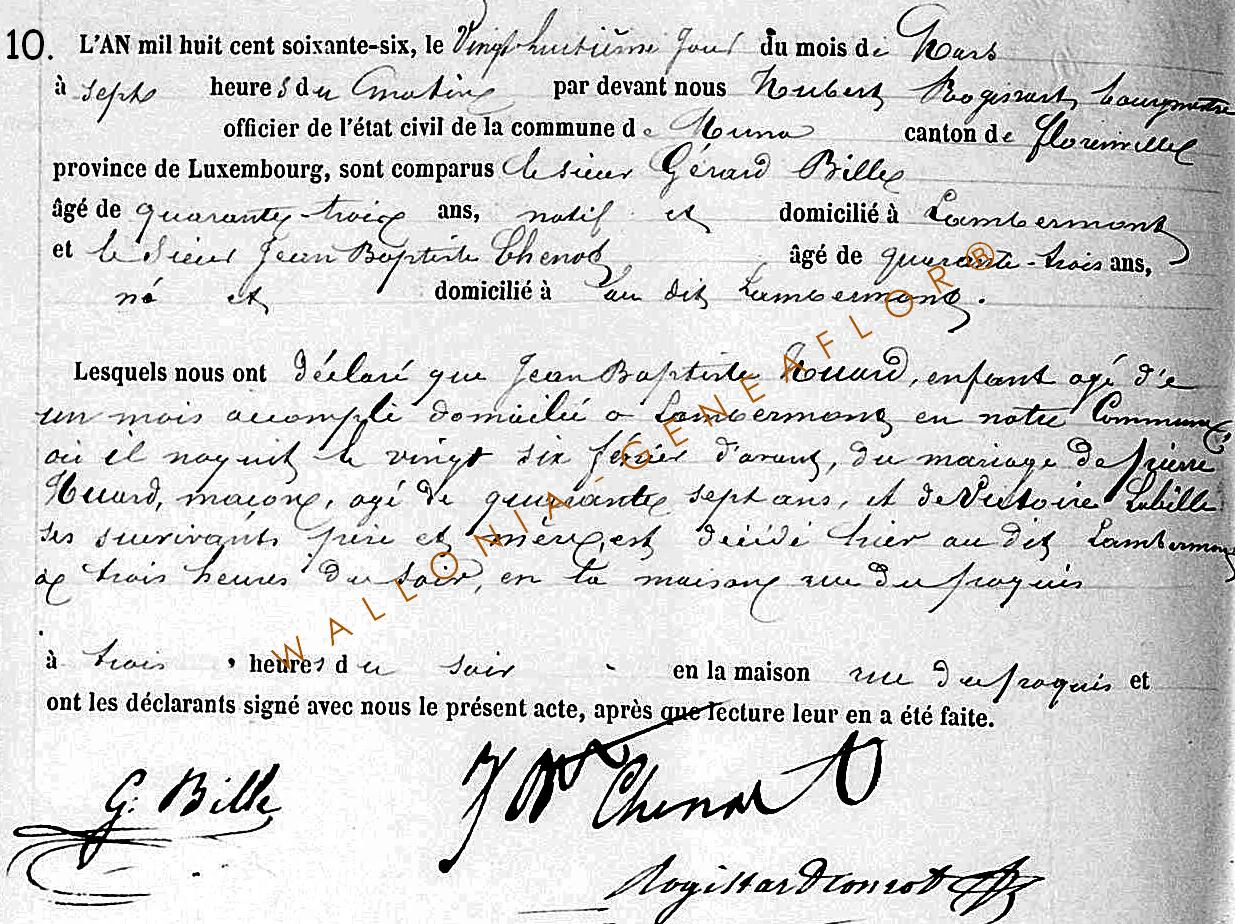 10. L'AN mil huit cent soixante-six, le Vingt huitième jour du mois de Mars
à sept heures du matin par devant nous Hubert Rogissart, bourgmestre
officier de l'état civil de la commune de Muno canton de florenville
province de Luxembourg, sont comparus le sieur Gérard Bille
âgé de quarante-trois ans, natif et domicilié à Lambermont
et le Sieur Jean Baptiste Chenot âgé de quarante-trois ans,
né et domicilié à au dit Lambermont.
Lesquels nous ont déclaré que Jean Baptiste Huard, enfant agé d'e
un mois accompli domicilié a Lambermont en notre Commune,
où il naquit le vingt six février d'avant, du mariage de pierre
Huard, maçon, agé de quarante sept ans, et de Victoire Labille
ses survivants père et mère, est décédé hier au dit Lambermont
a trois heures du soir, en la maison rue du paquis
à trois heures du soir en la maison rue du paquis et
ont les déclarants signé avec nous le présent acte, après que lecture leur en a été faite.
G. Bille
J Bte Chenot
Rogissart
WALLONIA-GENEAFLOR®